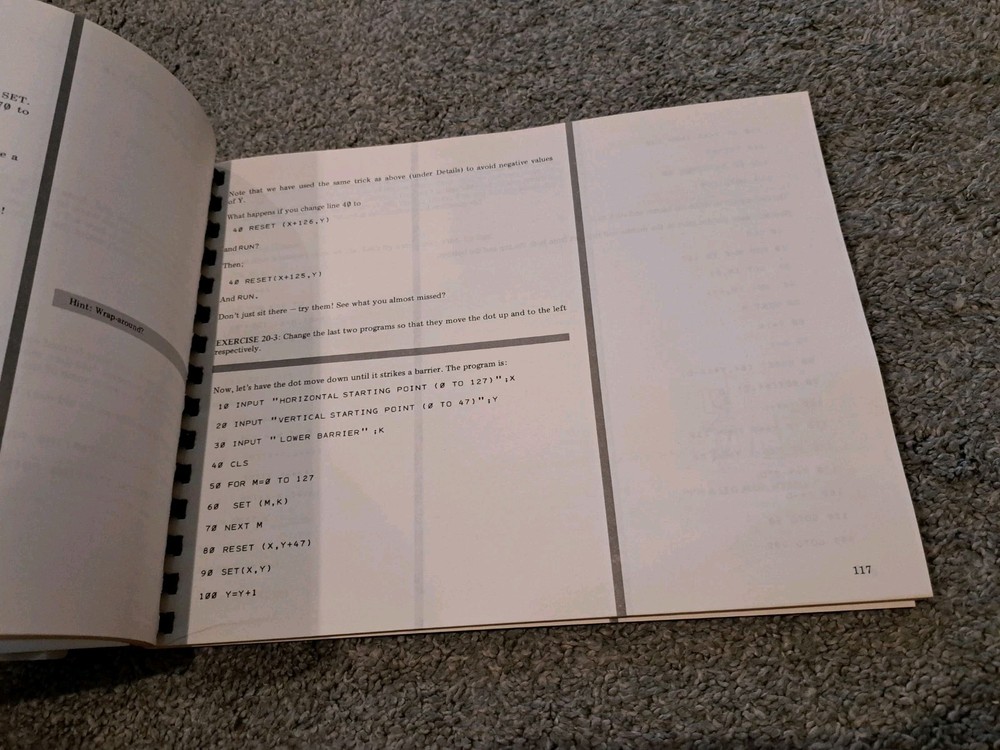 SET.
70 to
e a
!
Hint: Wrap-around!
Note that we have used the same trick as above (under Details) to avoid negative values
of Y.
What happens if you change line 40 to
40 RESET (X+126,Y)
and RUN?
Then:
40 RESET(X+125,Y)
And RUN.
Don't just sit there — try them! See what you almost missed?
EXERCISE 20-3: Change the last two programs so that they move the dot up and to the left
respectively.
Now, let's have the dot move down until it strikes a barrier. The program is:
10 INPUT "HORIZONTAL STARTING POINT (0 TO 127)";X
20 INPUT "VERTICAL STARTING POINT (0 TO 47)";Y
30 INPUT "LOWER BARRIER";K
40 CLS
50 FOR M=0 TO 127
60 SET (M,K)
70 NEXT M
80 RESET (X,Y+47)
90 SET(X,Y)
100 Y=Y+1
117